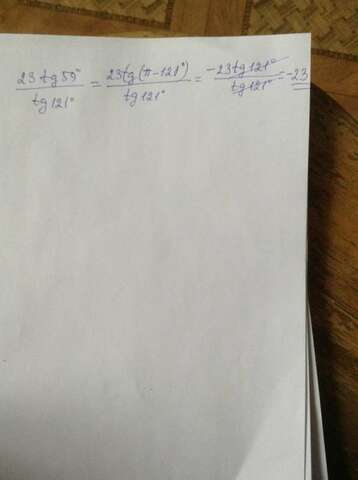 23 tg 59° / tg 121° = 23tg(π-121°) / tg 121° = -23tg121° / tg121° = -23